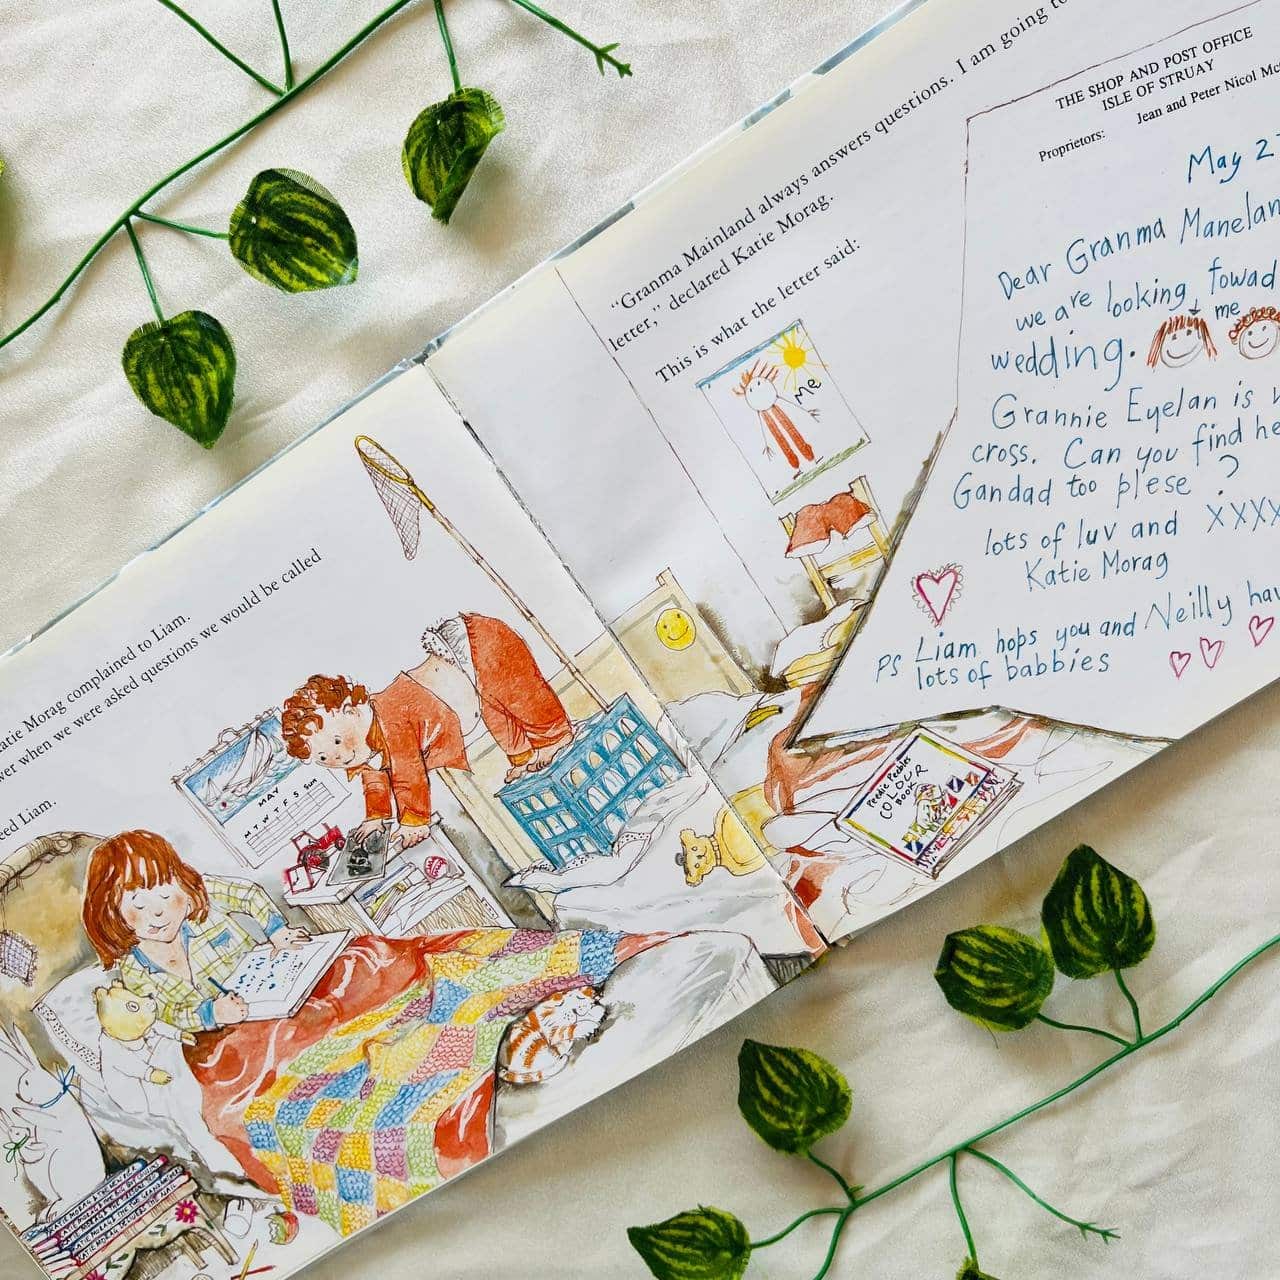 Katie Morag complained to Liam.
ver when we were asked questions we would be called
eed Liam.
MAY
M T W T F S Sun
"Granma Mainland always answers questions. I am going to
letter," declared Katie Morag.
This is what the letter said:
Me
THE SHOP AND POST OFFICE
ISLE OF STRUAY
Proprietors: Jean and Peter Nicol
May 2
Dear Granma Manelan
we are looking fowad
me
wedding.
Grannie Eyelan is
cross. Can you find he
Gandad too plese?
lots of luv and XXXX
Katie Morag
PS Liam hops you and Neilly hav
lots of babbies
Peedie Peebles
COLOUR
BOOK
KATIE MORAG DELIVERS THE MAIL